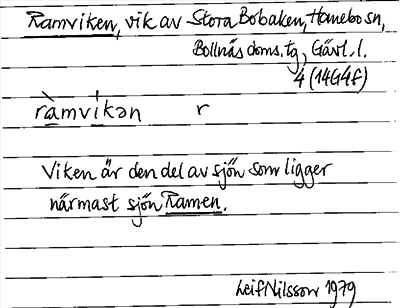 Ramviken, vik av Stora Bobaken, Hanebo sn,
Bollnäs doms. tg, Gävl. l.
4 (14G4f)
ràmvíkən r
Viken är den del av sjön som ligger
närmast sjön Ramen.
Leif Nilsson 1979